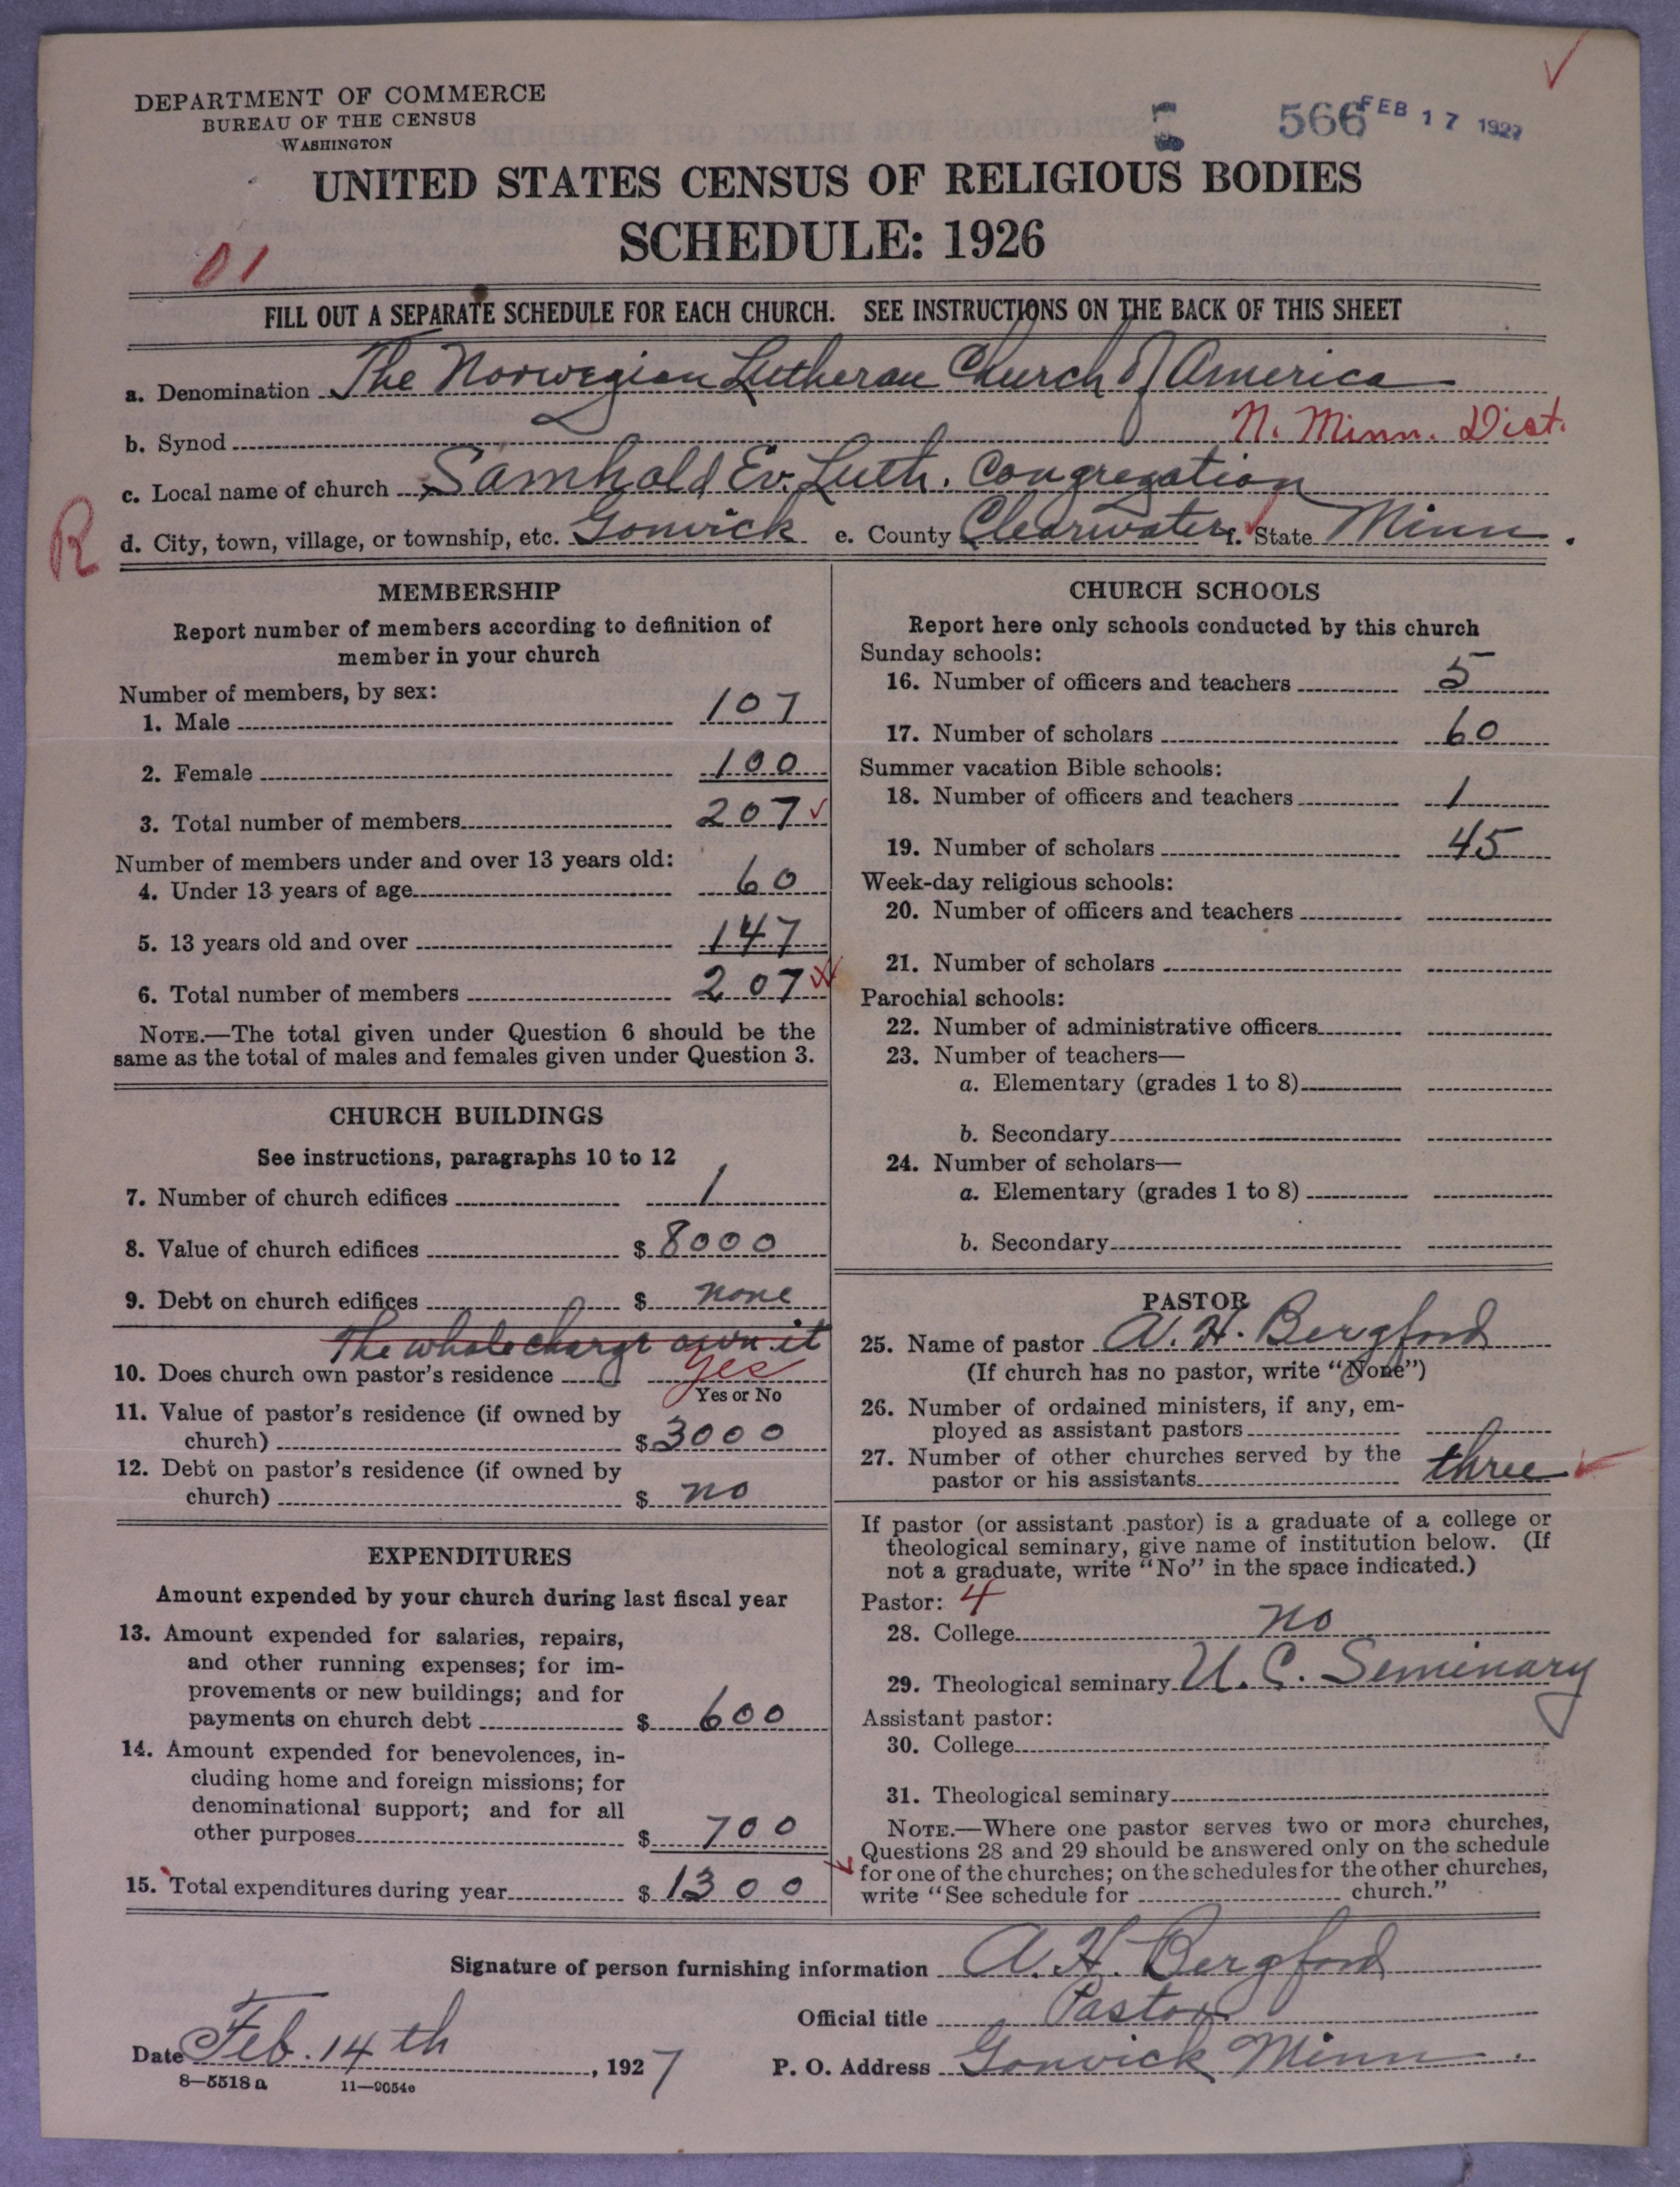 DEPARTMENT OF COMMERCE
BUREAU OF THE CENSUS
WASHINGTON
566
FEB 17 1927
UNITED STATES CENSUS OF RELIGIOUS BODIES
SCHEDULE: 1926
01
FILL OUT A SEPARATE SCHEDULE FOR EACH CHURCH. SEE INSTRUCTIONS ON THE BACK OF THIS SHEET
a. Denomination The Norwegian Lutheran Church of America
b. Synod N. Minn. Dist.
c. Local name of church Samhold Ev. Luth. Congregation
R
d. City, town, village, or township, etc. Gonvick e. County Clearwater f. State Minn.
MEMBERSHIP
Report number of members according to definition of
member in your church
Number of members, by sex:
1. Male 107
2. Female 100
3. Total number of members 207
Number of members under and over 13 years old:
4. Under 13 years of age 60
5. 13 years old and over 147
6. Total number of members 207
NOTE.—The total given under Question 6 should be the
same as the total of males and females given under Question 3.
CHURCH BUILDINGS
See instructions, paragraphs 10 to 12
7. Number of church edifices 1
8. Value of church edifices $ 8000
9. Debt on church edifices $ none
The whole charge own it
10. Does church own pastor's residence yes
Yes or No
11. Value of pastor's residence (if owned by
church) $ 3000
12. Debt on pastor's residence (if owned by
church) $ no
EXPENDITURES
Amount expended by your church during last fiscal year
13. Amount expended for salaries, repairs,
and other running expenses; for im-
provements or new buildings; and for
payments on church debt $ 600
14. Amount expended for benevolences, in-
cluding home and foreign missions; for
denominational support; and for all
other purposes $ 700
15. Total expenditures during year $ 1300
CHURCH SCHOOLS
Report here only schools conducted by this church
Sunday schools:
16. Number of officers and teachers 5
17. Number of scholars 60
Summer vacation Bible schools:
18. Number of officers and teachers 1
19. Number of scholars 45
Week-day religious schools:
20. Number of officers and teachers
21. Number of scholars
Parochial schools:
22. Number of administrative officers
23. Number of teachers—
a. Elementary (grades 1 to 8)
b. Secondary
24. Number of scholars—
a. Elementary (grades 1 to 8)
b. Secondary
PASTOR
25. Name of pastor A. H. Bergford
(If church has no pastor, write "None")
26. Number of ordained ministers, if any, em-
ployed as assistant pastors
27. Number of other churches served by the
pastor or his assistants three
If pastor (or assistant pastor) is a graduate of a college or
theological seminary, give name of institution below. (If
not a graduate, write "No" in the space indicated.)
Pastor: 4
28. College no
29. Theological seminary U. C. Seminary
Assistant pastor:
30. College
31. Theological seminary
NOTE.—Where one pastor serves two or more churches,
Questions 28 and 29 should be answered only on the schedule
for one of the churches; on the schedules for the other churches,
write "See schedule for church."
Signature of person furnishing information A. H. Bergford
Official title Pastor
Date Feb. 14th, 1927 P. O. Address Gonvick Minn.
8—5518 a 11—9054e